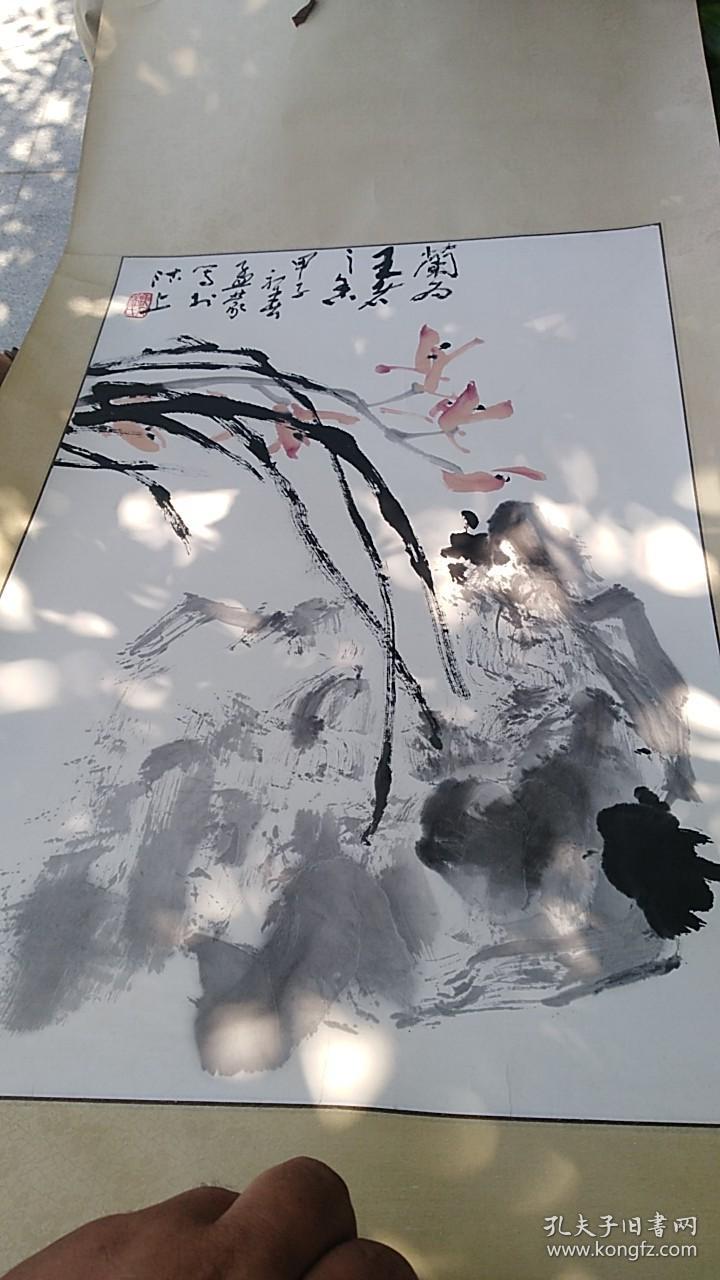 蘭为
王者
之香
甲子
初春
孟蒙
写於
上
孔夫子旧书网
www.kongfz.com